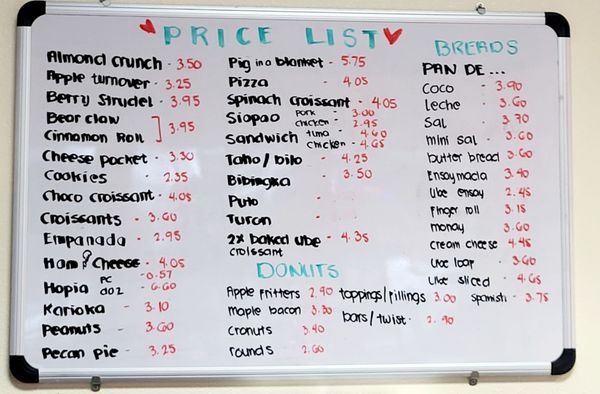 PRICE LIST
Almond crunch - 3.50
Apple turnover - 3.25
Berry Strudel - 3.95
Bear claw
Cinnamon Roll ] 3.95
Cheese pocket - 3.30
Cookies - 2.35
Choco croissant - 4.05
Croissants - 3.60
Empanada - 2.95
Ham & Cheese - 4.05
Hopia PC - 0.57
doz - 6.60
Karioka - 3.10
Peanuts - 3.60
Pecan pie - 3.25
Pig in a blanket - 5.75
Pizza - 4.05
Spinach croissant - 4.05
Siopao pork - 3.00
chicken - 2.95
Sandwich tuna - 4.60
chicken - 4.65
Taho / bilo - 4.25
Bibingka - 3.50
Puto -
Turon -
2x baked ube - 4.35
croissant
DONUTS
Apple fritters 2.90
maple bacon 3.30
cronuts 3.40
rounds 2.60
toppings/fillings 3.00
bars/twist - 2.90
BREADS
PAN DE...
Coco - 3.90
Leche - 3.60
Sal - 3.70
mini sal - 3.60
butter bread 3.60
Ensaymada 3.40
Ube ensay 2.45
Finger roll 3.15
monay 3.60
cream cheese 4.45
Ube loaf - 3.60
Ube sliced - 4.65
Spanish - 3.75